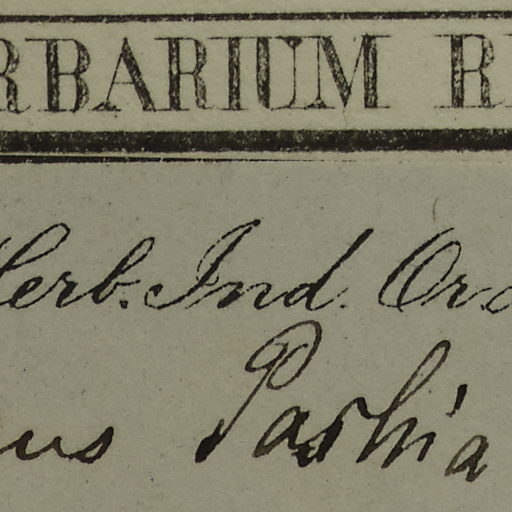 RBARIUM R
Herb. Ind. Or.
us Pashia